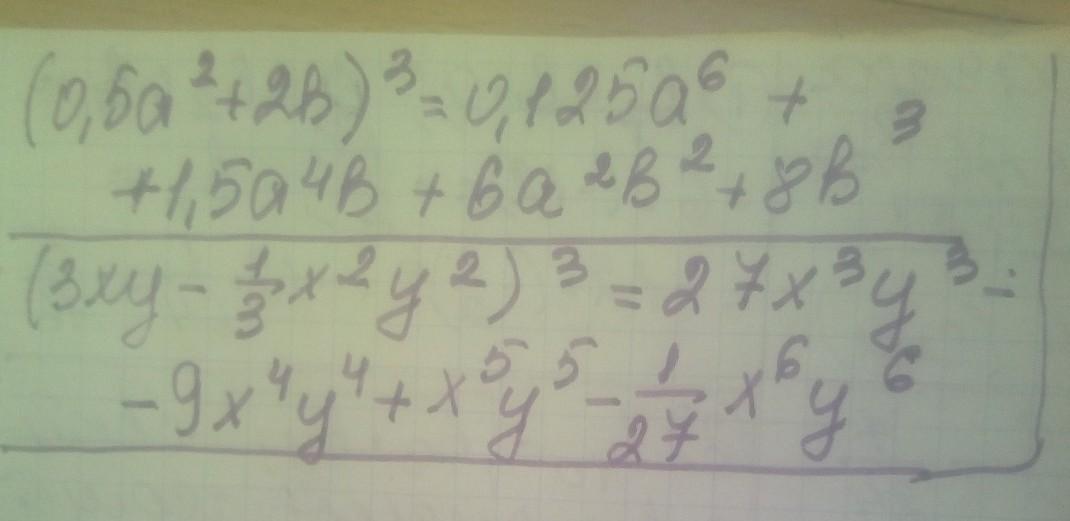 (0,5a²+2b)³=0,125a⁶ +
+1,5a⁴b + 6a²b² + 8b³
(3xy - 1/3 x²y²)³ = 27x³y³ -
- 9x⁴y⁴ + x⁵y⁵ - 1/27 x⁶y⁶